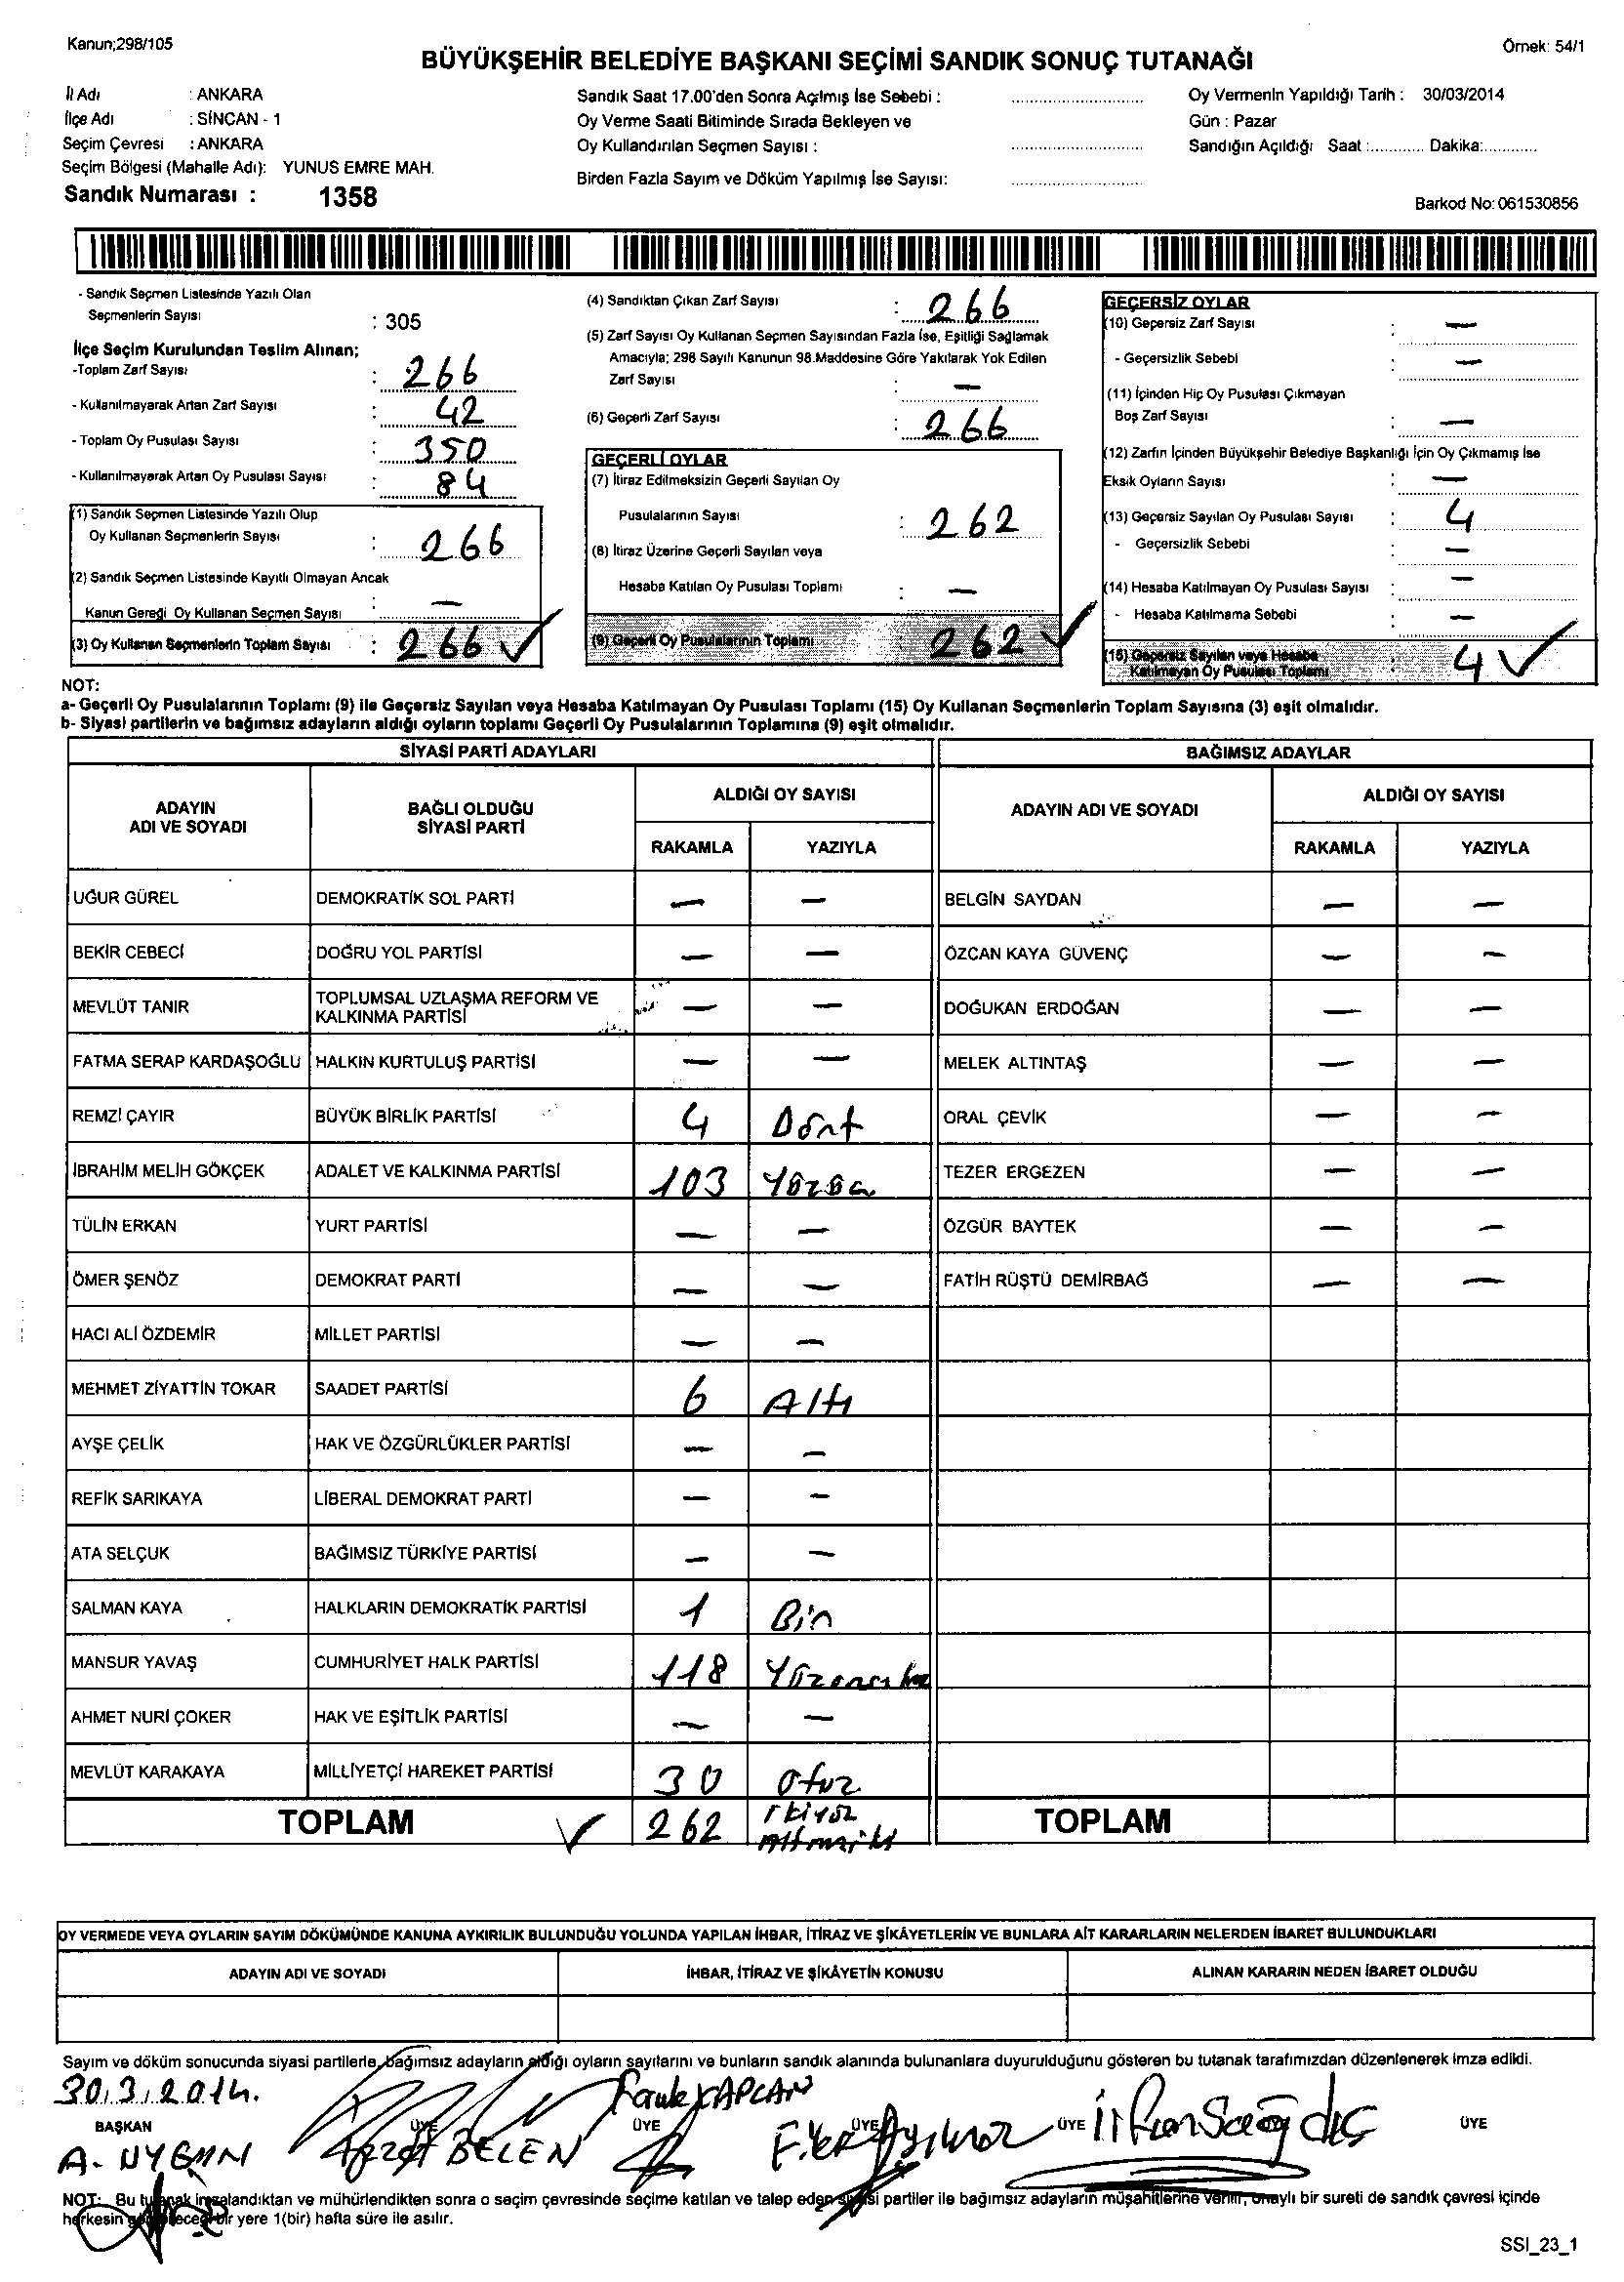 Kanun;298/105
Örnek: 54/1
BÜYÜKŞEHİR BELEDİYE BAŞKANI SEÇİMİ SANDIK SONUÇ TUTANAĞI
İl Adı : ANKARA
İlçe Adı : SİNCAN - 1
Seçim Çevresi : ANKARA
Seçim Bölgesi (Mahalle Adı): YUNUS EMRE MAH.
Sandık Numarası : 1358
Sandık Saat 17.00'den Sonra Açılmış İse Sebebi :
Oy Verme Saati Bitiminde Sırada Bekleyen ve
Oy Kullandırılan Seçmen Sayısı :
Birden Fazla Sayım ve Döküm Yapılmış İse Sayısı:
Oy Vermenin Yapıldığı Tarih : 30/03/2014
Gün : Pazar
Sandığın Açıldığı Saat :............ Dakika:............
Barkod No: 061530856
- Sandık Seçmen Listesinde Yazılı Olan
Seçmenlerin Sayısı : 305
İlçe Seçim Kurulundan Teslim Alınan;
-Toplam Zarf Sayısı : 266
- Kullanılmayarak Artan Zarf Sayısı : 42
- Toplam Oy Pusulası Sayısı : 350
- Kullanılmayarak Artan Oy Pusulası Sayısı : 84
(1) Sandık Seçmen Listesinde Yazılı Olup
Oy Kullanan Seçmenlerin Sayısı : 266
(2) Sandık Seçmen Listesinde Kayıtlı Olmayan Ancak
Kanun Gereği Oy Kullanan Seçmen Sayısı : —
(3) Oy Kullanan Seçmenlerin Toplam Sayısı : 266 ✓
(4) Sandıktan Çıkan Zarf Sayısı : 266
(5) Zarf Sayısı Oy Kullanan Seçmen Sayısından Fazla İse, Eşitliği Sağlamak
Amacıyla; 298 Sayılı Kanunun 98.Maddesine Göre Yakılarak Yok Edilen
Zarf Sayısı : —
(6) Geçerli Zarf Sayısı : 266
GEÇERLİ OYLAR
(7) İtiraz Edilmeksizin Geçerli Sayılan Oy
Pusulalarının Sayısı : 262
(8) İtiraz Üzerine Geçerli Sayılan veya
Hesaba Katılan Oy Pusulası Toplamı : —
(9) Geçerli Oy Pusulalarının Toplamı : 262 ✓
GEÇERSİZ OYLAR
(10) Geçersiz Zarf Sayısı : —
- Geçersizlik Sebebi : —
(11) İçinden Hiç Oy Pusulası Çıkmayan
Boş Zarf Sayısı : —
(12) Zarfın İçinden Büyükşehir Belediye Başkanlığı İçin Oy Çıkmamış İse
Eksik Oyların Sayısı : —
(13) Geçersiz Sayılan Oy Pusulası Sayısı : 4
- Geçersizlik Sebebi : —
(14) Hesaba Katılmayan Oy Pusulası Sayısı : —
- Hesaba Katılmama Sebebi : —
(15) Geçersiz Sayılan veya Hesaba
Katılmayan Oy Pusulası Toplamı : 4 ✓
NOT:
a- Geçerli Oy Pusulalarının Toplamı (9) ile Geçersiz Sayılan veya Hesaba Katılmayan Oy Pusulası Toplamı (15) Oy Kullanan Seçmenlerin Toplam Sayısına (3) eşit olmalıdır.
b- Siyasi partilerin ve bağımsız adayların aldığı oyların toplamı Geçerli Oy Pusulalarının Toplamına (9) eşit olmalıdır.
SİYASİ PARTİ ADAYLARI
ADAYIN ADI VE SOYADI BAĞLI OLDUĞU SİYASİ PARTİ ALDIĞI OY SAYISI
RAKAMLA YAZIYLA
UĞUR GÜREL DEMOKRATİK SOL PARTİ — —
BEKİR CEBECİ DOĞRU YOL PARTİSİ — —
MEVLÜT TANIR TOPLUMSAL UZLAŞMA REFORM VE KALKINMA PARTİSİ — —
FATMA SERAP KARDAŞOĞLU HALKIN KURTULUŞ PARTİSİ — —
REMZİ ÇAYIR BÜYÜK BİRLİK PARTİSİ 4 Dört
İBRAHİM MELİH GÖKÇEK ADALET VE KALKINMA PARTİSİ 103 Yüzüç
TÜLİN ERKAN YURT PARTİSİ — —
ÖMER ŞENÖZ DEMOKRAT PARTİ — —
HACI ALİ ÖZDEMİR MİLLET PARTİSİ — —
MEHMET ZİYATTİN TOKAR SAADET PARTİSİ 6 Altı
AYŞE ÇELİK HAK VE ÖZGÜRLÜKLER PARTİSİ — —
REFİK SARIKAYA LİBERAL DEMOKRAT PARTİ — —
ATA SELÇUK BAĞIMSIZ TÜRKİYE PARTİSİ — —
SALMAN KAYA HALKLARIN DEMOKRATİK PARTİSİ 1 Bir
MANSUR YAVAŞ CUMHURİYET HALK PARTİSİ 118
AHMET NURİ ÇOKER HAK VE EŞİTLİK PARTİSİ — —
MEVLÜT KARAKAYA MİLLİYETÇİ HAREKET PARTİSİ 30 Otuz
TOPLAM ✓ 262 ikiyüz Altmışiki
BAĞIMSIZ ADAYLAR
ADAYIN ADI VE SOYADI ALDIĞI OY SAYISI
RAKAMLA YAZIYLA
BELGİN SAYDAN — —
ÖZCAN KAYA GÜVENÇ — —
DOĞUKAN ERDOĞAN — —
MELEK ALTINTAŞ — —
ORAL ÇEVİK — —
TEZER ERGEZEN — —
ÖZGÜR BAYTEK — —
FATİH RÜŞTÜ DEMİRBAĞ — —
TOPLAM
OY VERMEDE VEYA OYLARIN SAYIM DÖKÜMÜNDE KANUNA AYKIRILIK BULUNDUĞU YOLUNDA YAPILAN İHBAR, İTİRAZ VE ŞİKÂYETLERİN VE BUNLARA AİT KARARLARIN NELERDEN İBARET BULUNDUKLARI
ADAYIN ADI VE SOYADI İHBAR, İTİRAZ VE ŞİKÂYETİN KONUSU ALINAN KARARIN NEDEN İBARET OLDUĞU
Sayım ve döküm sonucunda siyasi partilerle, bağımsız adayların aldığı oyların sayılarını ve bunların sandık alanında bulunanlara duyurulduğunu gösteren bu tutanak tarafımızdan düzenlenerek imza edildi.
30.3.2014.
BAŞKAN ÜYE ÜYE ÜYE ÜYE ÜYE
A. UYGUN BELEN KAPLAN
NOT: Bu tutanak imzalandıktan ve mühürlendikten sonra o seçim çevresinde seçime katılan ve talep eden siyasi partiler ile bağımsız adayların müşahitlerine verilir, onaylı bir sureti de sandık çevresi içinde
herkesin görebileceği bir yere 1(bir) hafta süre ile asılır.
SSI_23_1